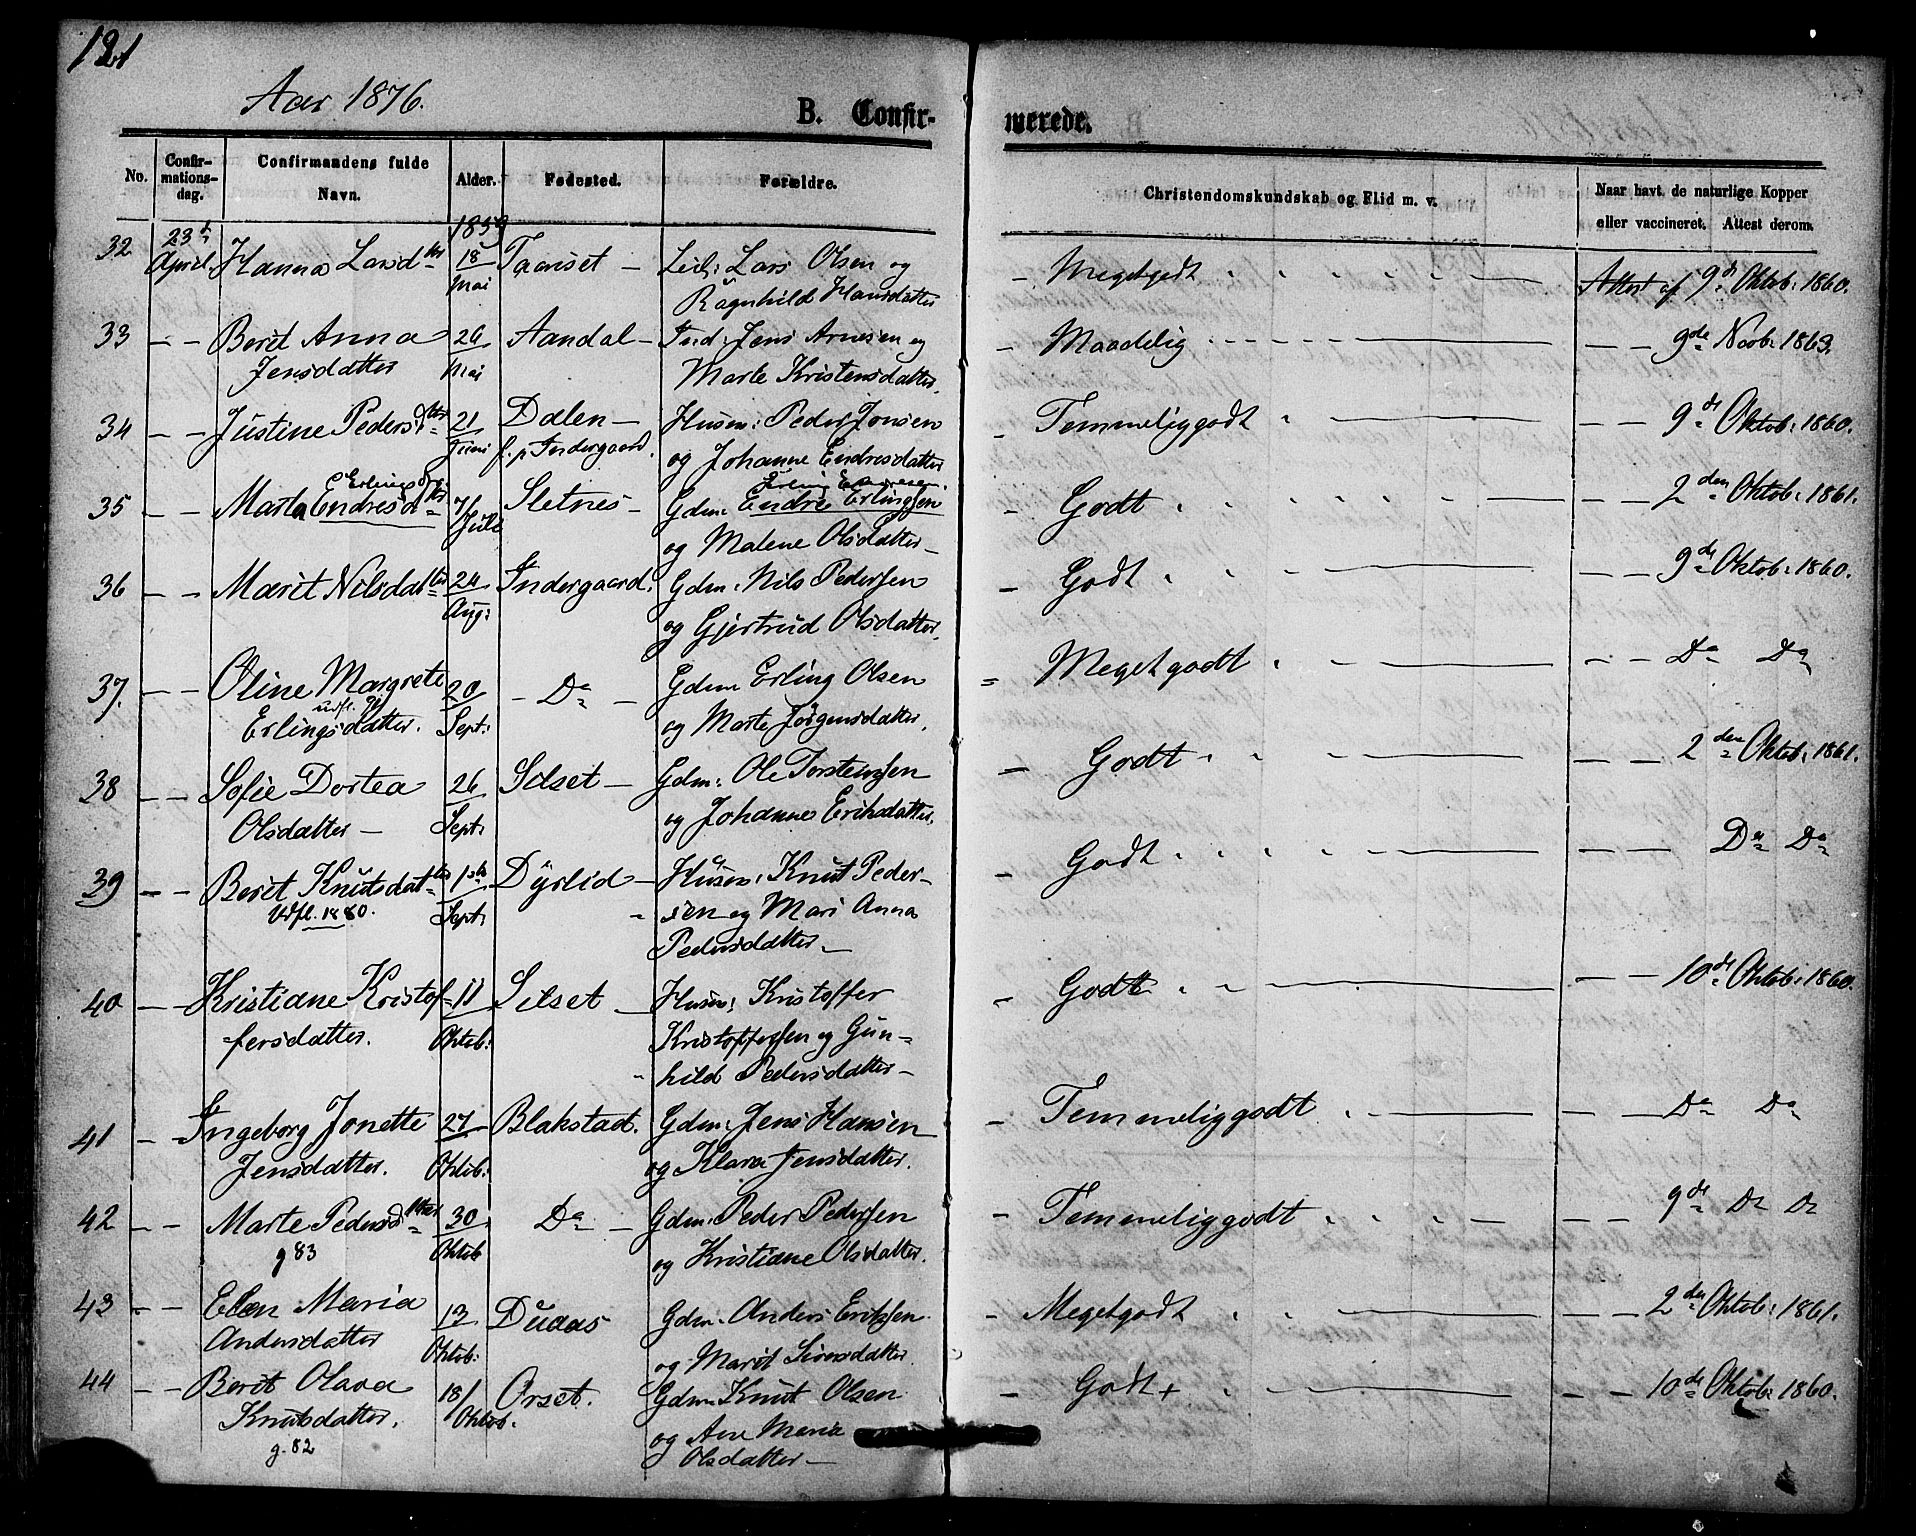 121
Aar 1876.
B. Confirmerede.
No. Confirmationsdag. Confirmandens fulde Navn. Alder. Fødested. Forældre. Christendomskundskab og Flid m. v. Naar havt de naturlige Kopper eller vaccineret. Attest derom.
1859
32 23d April. Hanna Larsdtr 18 Mai Taarset - Leil: Lars Olsen og Ragnhild Hansdatter - Megetgodt Attest af 9de Oktob: 1860.
33 Berit Anna Jensdatter 26 Mai Aandal - Ind: Jens Arnesen og Marte Kristensdatter. - Maadelig 9de Novb: 1863.
34 - - Justine Pedersdtr 21 Juni Dalen - f. p. Indergaard. Husm: Peder Jonsen og Johanne Endresdatter - Temmeliggodt 9de Oktob: 1860.
Erlingsdtr Erling Endresen
35 - - Marta Endresdtr 7/ Juli Sletnes - Gdm: Endre Erlingsen og Malene Olsdatter - - Godt 2den Oktob: 1861.
36 - - Marit Nilsdatter 24 Aug: Indergaard. Gdm: Nils Pedersen og Gjertrud Olsdatter. - Godt 9de Oktob: 1860.
37. - - Oline Margrete Erlingsdatter. udfl. 20 Sept: - Do - Gdm Erling Olsen og Marte Jørgensdatter. - Megetgodt Do Do
38 - - Sofie Dortea Olsdatter - 26 Sept: Silset - Gdm: Ole Torstensen og Johanne Eriksdatter. - Godt 2den Oktob: 1861.
39 - - Berit Knutsdatter Udfl. 1880. 1ste Sept: Dyrlid - Husm: Knut Pedersen og Mari Anna Pedersdatter - - Godt Do Do
40 - - Kristiane Kristoffersdatter. 11 Oktob: Silset - Husm: Kristoffer Kristoffersen og Gunhild Pedersdatter - - Godt 10de Oktob: 1860.
41 - Ingeborg Jonette Jensdatter. 27 Oktob: Blakstad. Gdm: Jens Hansen og Klara Jensdatter. - Temmeliggodt Do Do
42 - - Marte Pedersdatter g 83 30 Oktob Do - Gdm: Peder Pedersen og Kristiane Olsdatter. - Temmeliggodt 9de Do Do
43 - - Elen Maria Andersdatter 13 Oktob: Duaas Gdm: Anders Eriksen og Marit Siversdatter. - Megetgodt 2den Oktob: 1861.
44 - - Berit Olava Knutsdatter. g. 82 18/ Oktob. Orset. Gdm: Knut Olsen og Ane Maria Olsdatter - - Godt + 10de Oktob: 1860.